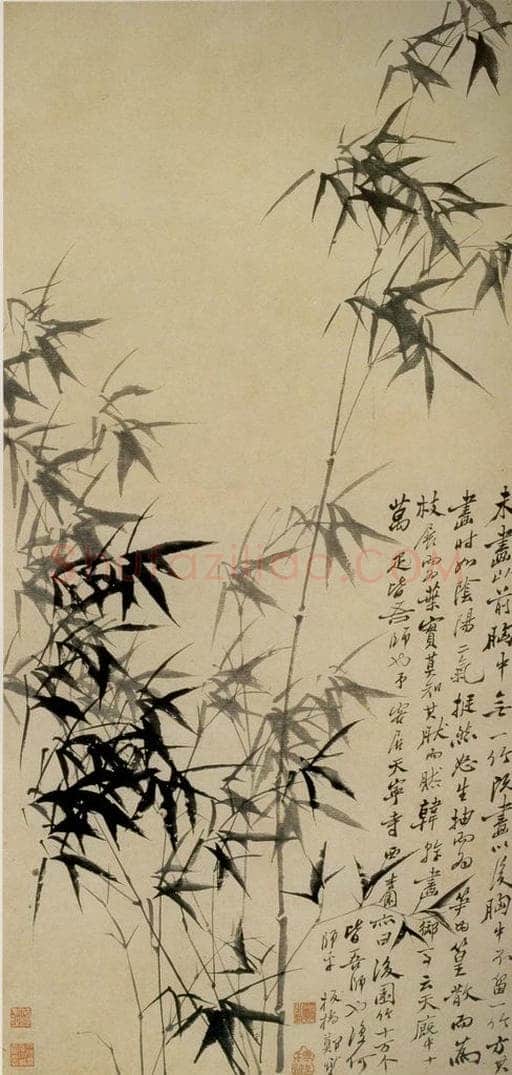 未畫以前胸中无一竹既畫以後胸中不留一竹方其
畫時如陰陽二氣挺然怒生抽而為筍為篁散而為
枝展而為葉實莫知其然而然韓幹畫御馬云天廄中十
萬疋皆吾師也予客居天寧寺西杏園亦曰後園竹十万个
皆吾師也復何
師乎板橋鄭燮
shufaziliao.com